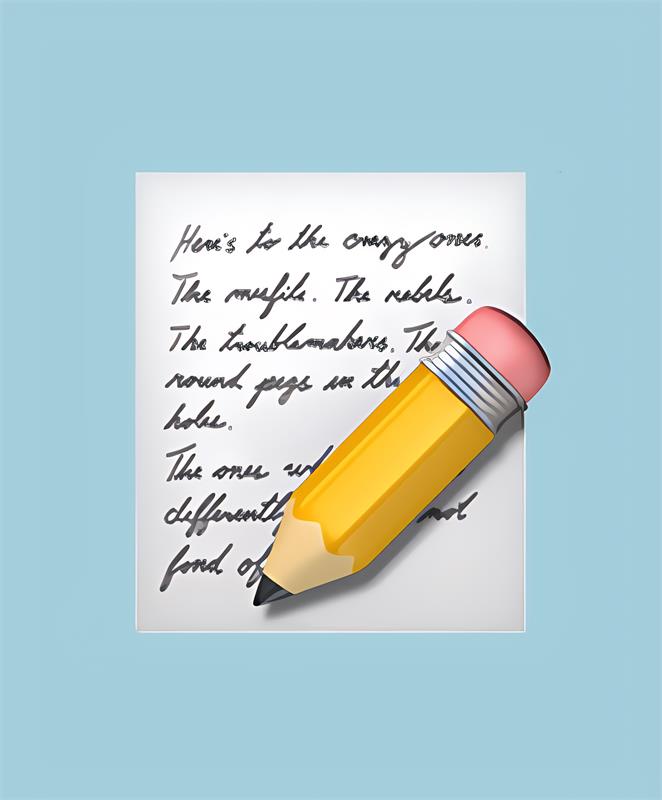 Here's to the crazy ones.
The misfits. The rebels.
The troublemakers. The
round pegs in the
holes.
The ones
differently
not
fond of